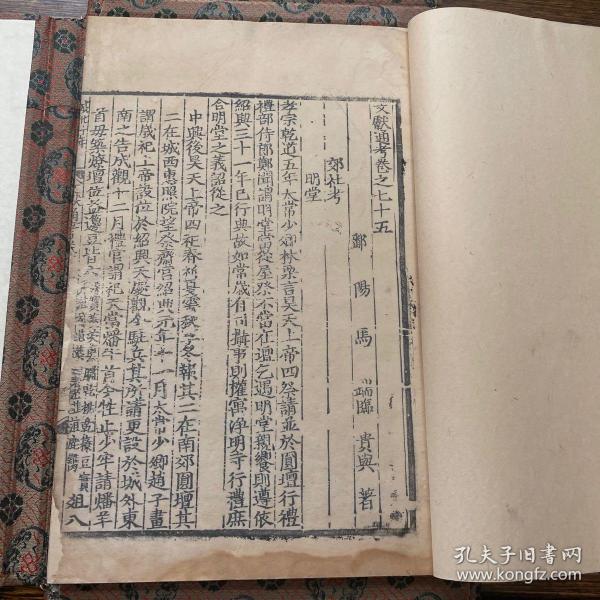 文獻通考卷之七十五
鄱陽馬端臨貴與著
郊社考
明堂
孝宗乾道五年太常少卿林栗言昊天上帝四祭請並於圓壇行禮
禮部侍郎鄭聞謂明堂當從屋祭不當在壇乞遇明堂親饗則遵依
紹興三十一年已行典故如常歲有司攝事則權寓淨明寺行禮庶
合明堂之義詔從之
中興後昊天上帝四祀春祈夏雩秋享冬報其二在南郊圓壇其
二在城西惠照院望祭齋宫紹興元年十一月太常少卿趙子畫
謂歲祀上帝設位於紹興天慶觀全駐兵其所請更設於城外東
南之告成觀十二月禮官謂祀天當燔牛首今牲止少牢請燔羊
首毋築燎壇位各籩豆皆
俎八
孔夫子旧书网
www.kongfz.com